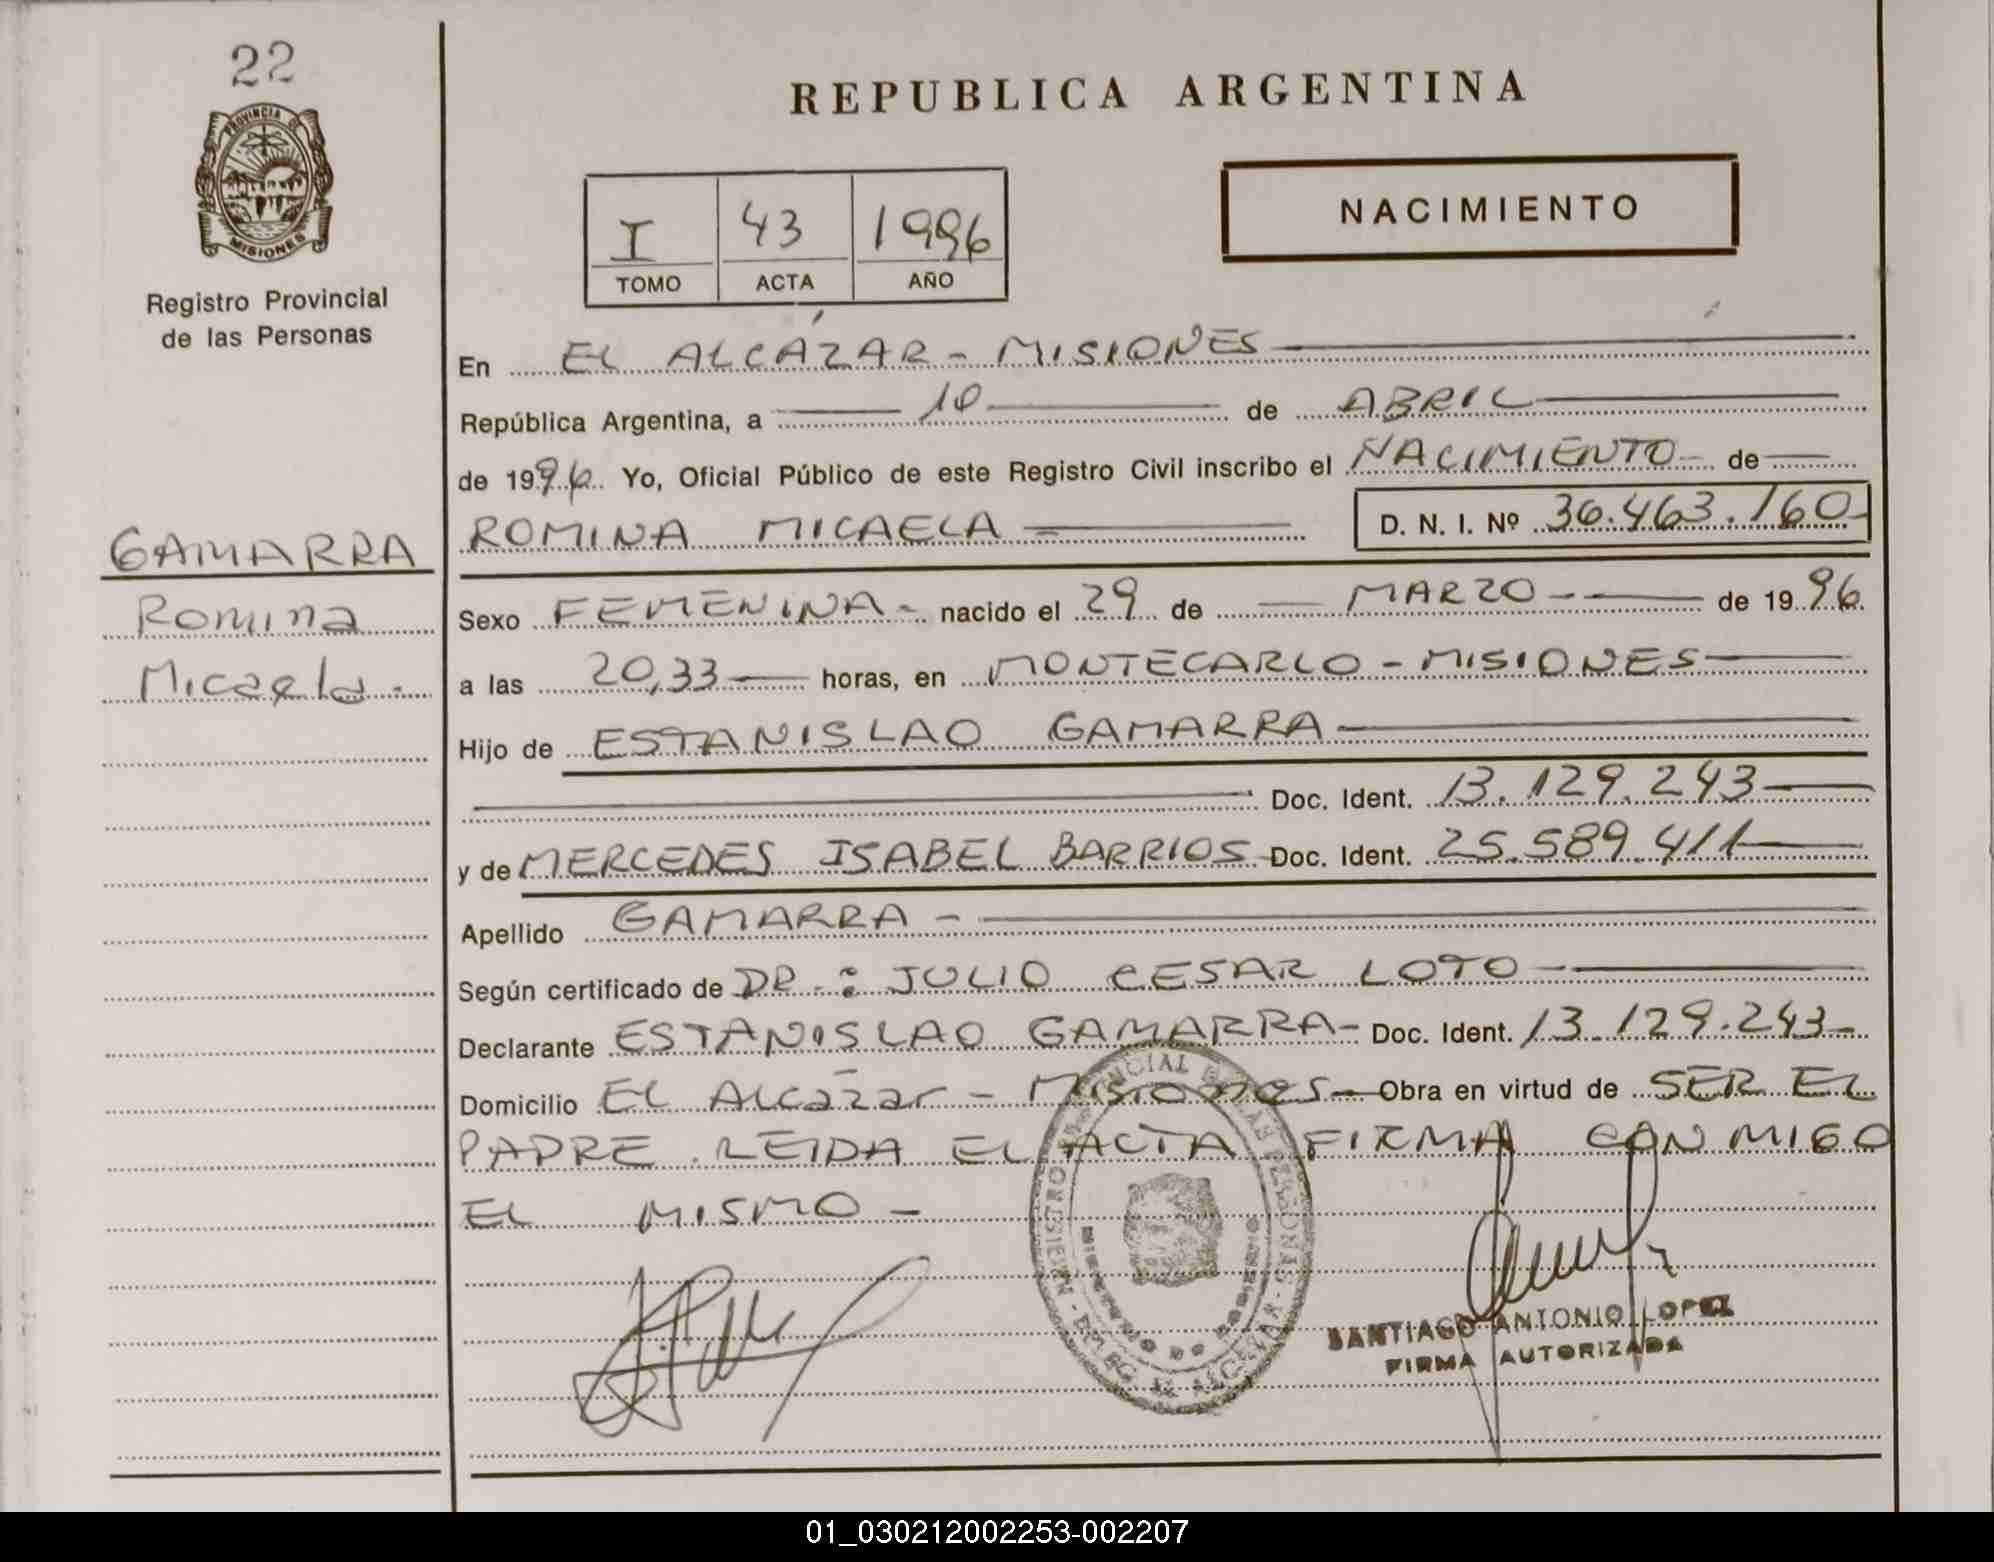 22
PROVINCIA DE
MISIONES
Registro Provincial
de las Personas
GAMARRA
Romina
Micaela.-
REPUBLICA ARGENTINA
I 43 1996
TOMO ACTA AÑO
NACIMIENTO
En EL ALCÁZAR - MISIONES
República Argentina, a 10 de ABRIL
de 1996. Yo, Oficial Público de este Registro Civil inscribo el NACIMIENTO - de
ROMINA MICAELA D. N. I. Nº 36.463.160-
Sexo FEMENINA - nacido el 29 de MARZO - de 1996.
a las 20,33 horas, en MONTECARLO - MISIONES
Hijo de ESTANISLAO GAMARRA
Doc. Ident. 13.129.243
y de MERCEDES ISABEL BARRIOS Doc. Ident. 25.589.411
Apellido GAMARRA -
Según certificado de DR.: JULIO CESAR LOTO -
Declarante ESTANISLAO GAMARRA - Doc. Ident. 13.129.243-
Domicilio EL Alcázar - Misiones - Obra en virtud de SER EL
PADRE. LEIDA EL ACTA FIRMA CONMIGO
EL MISMO -
SANTIAGO ANTONIO LOPEZ
FIRMA AUTORIZADA
01_030212002253-002207